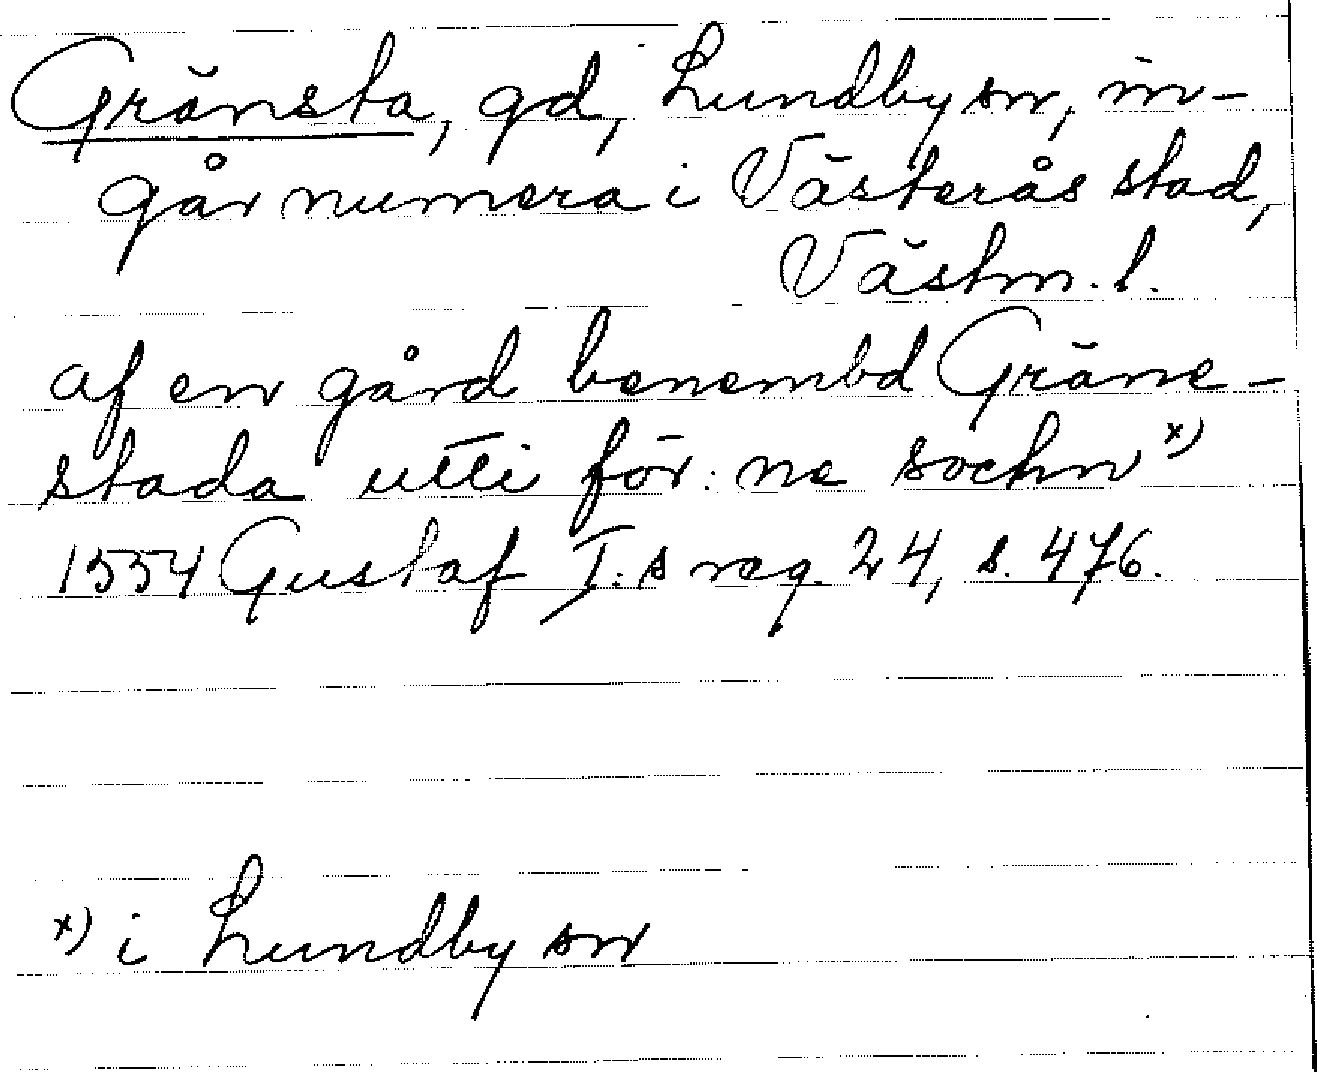 Gränsta, gd, Lundby sn, in-
går numera i Västerås stad,
Västm. l.
af en gård benembd Gräne-
stada utti för: ne sochn x)
1554 Gustaf I:s reg. 24, s. 476.
x) i Lundby sn